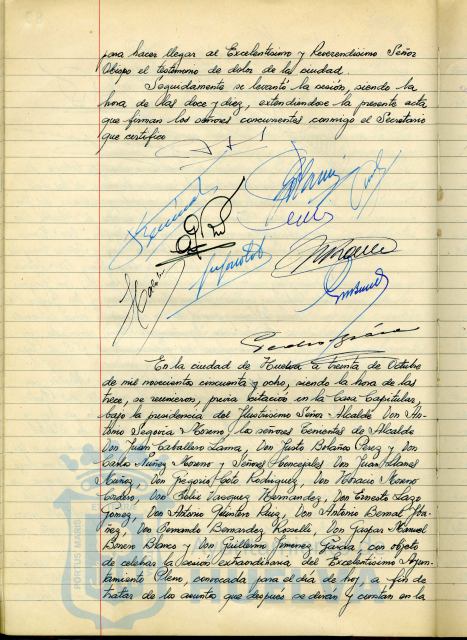 para hacer llegar al Excelentísimo y Reverendísimo Señor
Obispo el testimonio de dolor de la ciudad.
Seguidamente se levantó la sesión, siendo la
hora de las doce y diez, extendiendose la presente acta
que firman los señores concurrentes conmigo el Secretario
que certifico
En la ciudad de Huelva a treinta de Octubre
de mil novecientos cincuenta y ocho, siendo la hora de las
trece, se reunieron, previa citación en la Casa Capitular,
bajo la presidencia del Ilustrísimo Señor Alcalde Don An-
tonio Segovia Moreno los señores Tenientes de Alcalde
Don Juan Caballero Lama, Don Justo Bolaños Perez y Don
Carlos Nuñez Moreno y Señores Concejales Don Juan
Muñiz, Don Gregorio Soto Rodriguez, Don Horacio Moreno
Cordero, Don Felix Vazquez Hernandez, Don Ernesto Lazo
Gomez, Don Antonio Quintero Ruiz, Don Antonio Bernat
Don Armando Bernardez Rosselle, Don Gaspar Manuel
Blanco y Don Guillermo Jimenez García, con objeto
de celebrar la sesión extraordinaria, del Excelentísimo Ayun-
tamiento Pleno, convocada para el dia de hoy, a fin de
tratar de los asuntos que después se diran y constan en la
PORTUS MARIS